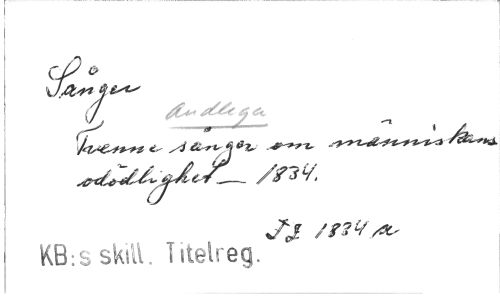 Sånger
Andliga
Tvenne sånger om människans
odödlighet _ 1834.
1834 a
KB:s skill. Titelreg.